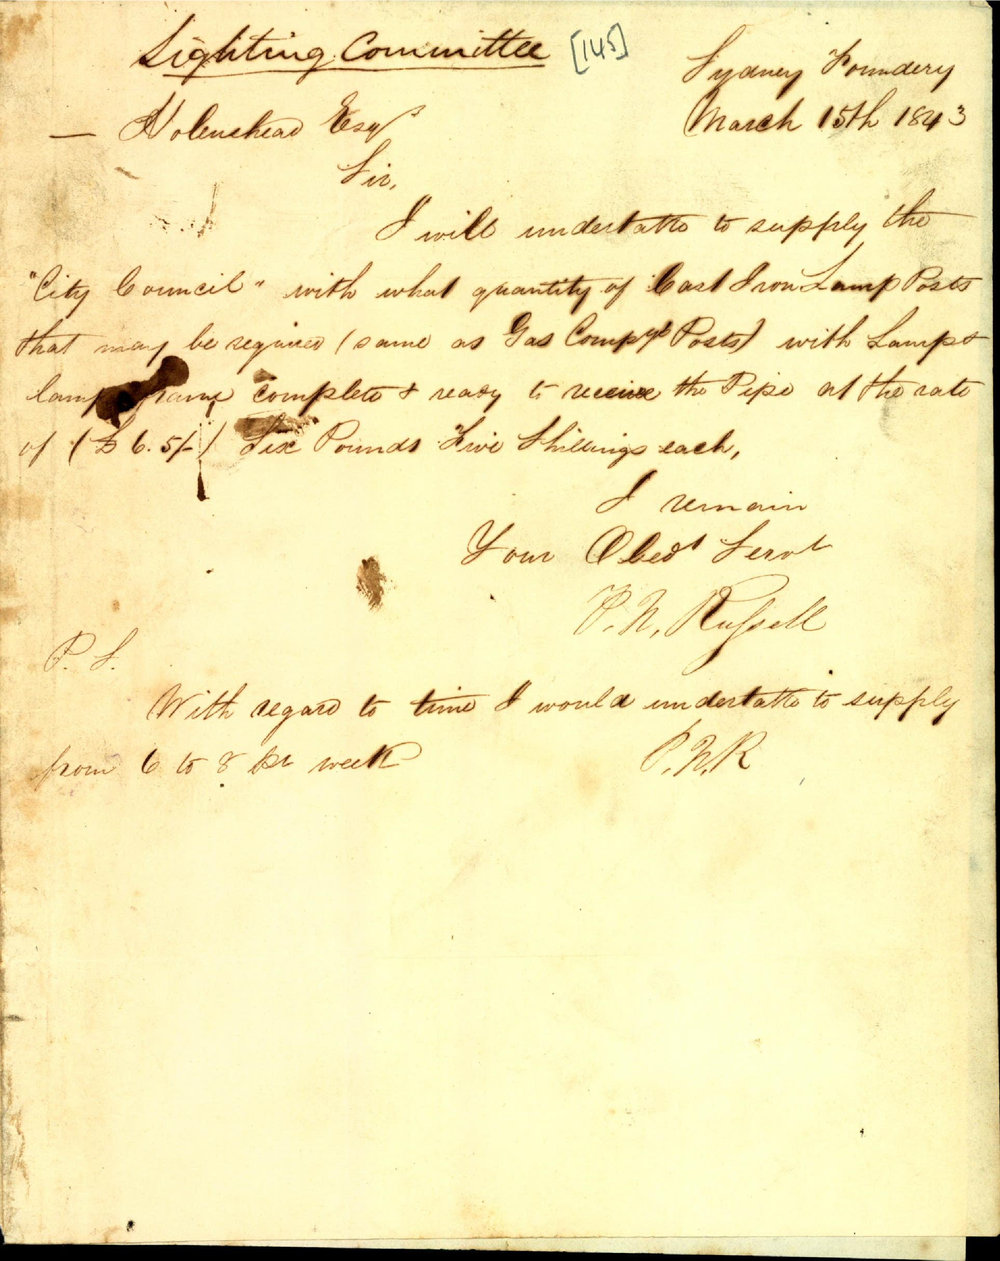 Lighting Committee [145]
Sydney Foundery
March 15th 1843
— Holenshead Esqr
Sir,
I will undertake to supply the
"City Council" with what quantity of Cast Iron Lamp Posts
that may be required (same as Gas Compys Posts) with Lamp &
lamp frame complete & ready to receive the Pipe at the rate
of (£6.5/-) Six Pounds Five Shillings each,
I remain
Your Obedt Servt
P. N. Russell
P. S.
With regard to time I would undertake to supply
from 6 to 8 per week P.N.R